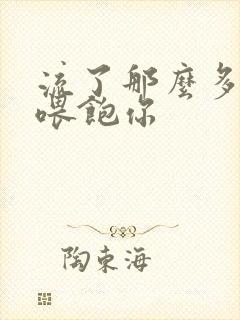 流了那麽多
喂飽你
陶東海